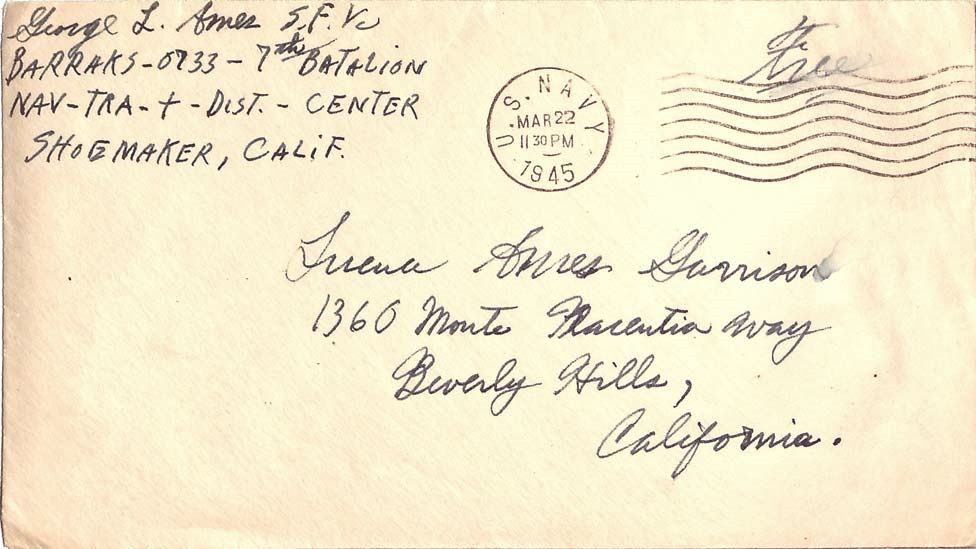 George L. Ames S.F. V.
BARRAKS - 0733 - 7th BATALION
NAV-TRA-+-DIST.- CENTER
SHOEMAKER, CALIF.
U.S. NAVY
MAR 22
11 30 PM
1945
Free
Ames Garrison
1360 Monte Placentia Way
Beverly Hills,
California.